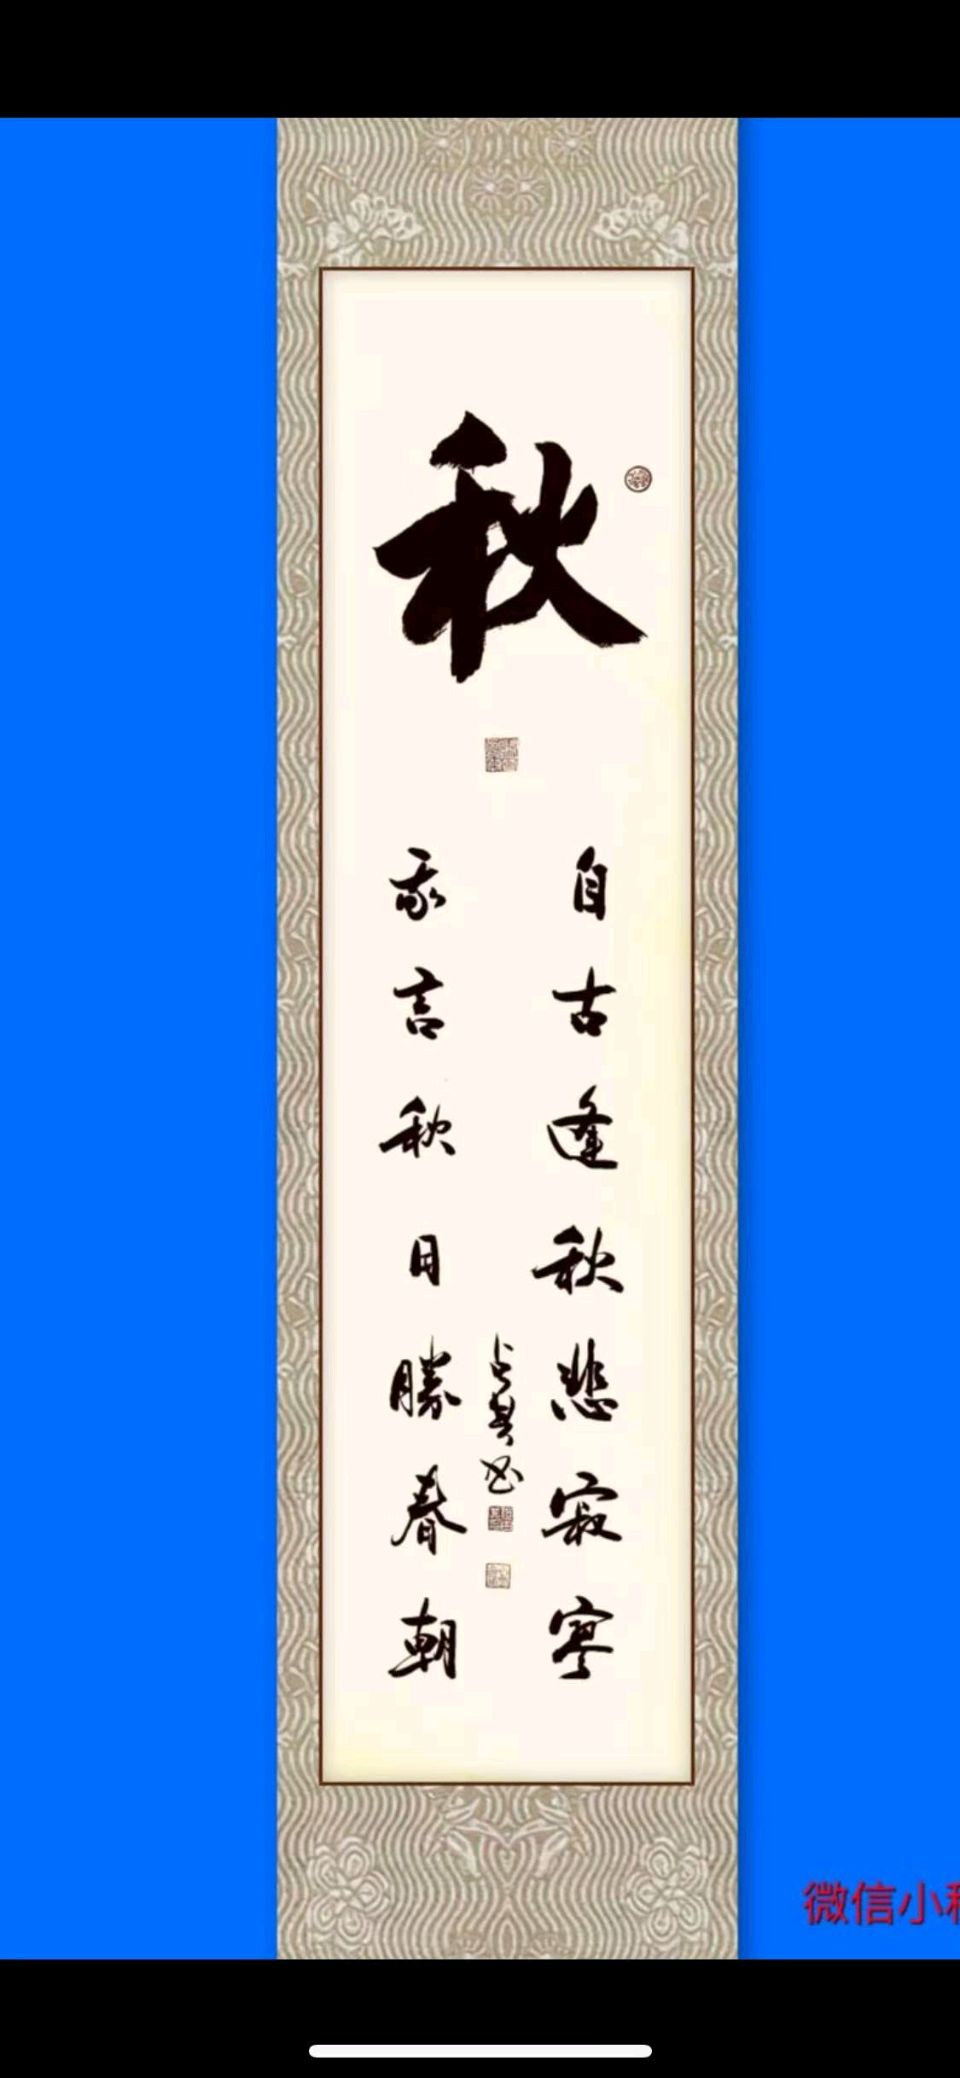 秋
自古逢秋悲寂寥
我言秋日勝春朝
微信小